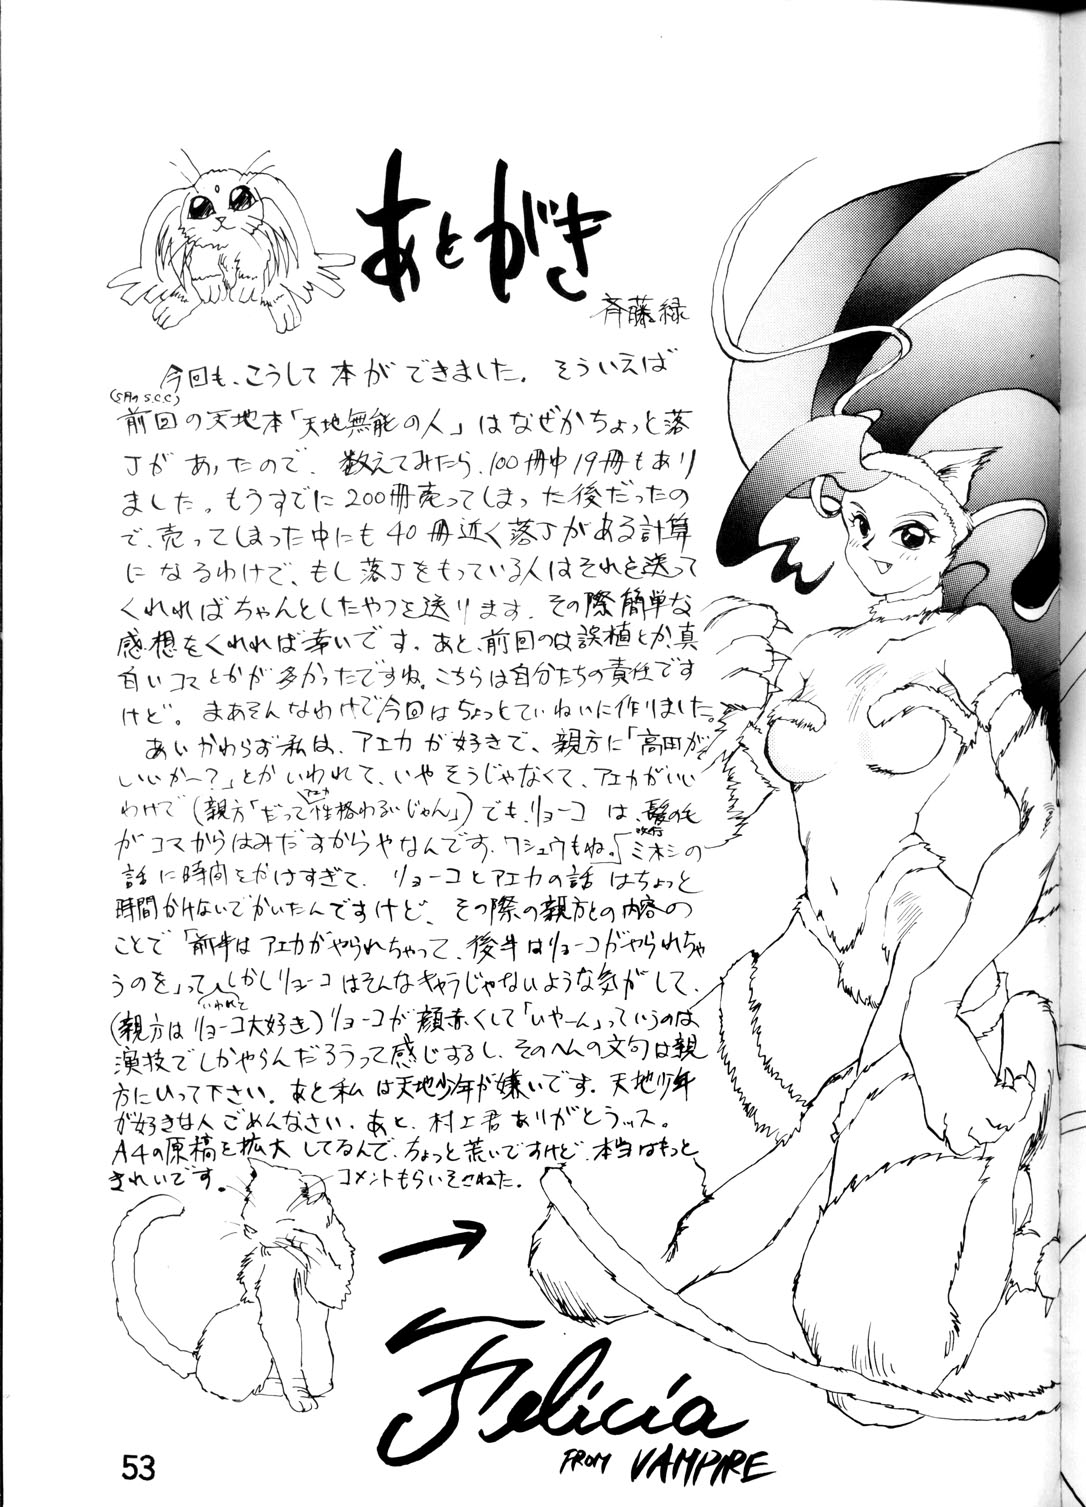 あとがき
斉藤緑
今回も、こうして本ができました。そういえば
(5月のS.C.C)
前回の天地本「天地無能の人」はなぜかちょっと落
丁があったので、数えてみたら、100冊中19冊もあり
ました。もうすでに200冊売ってしまった後だったの
で、売ってしまった中にも40冊近く落丁がある計算
になるわけで、もし落丁をもっている人はそれを送って
くれればちゃんとしたやつを送ります。その際簡単な
感想をくれれば幸いです。あと、前回のは誤植とか、真
白いコマとかが多かったですね。こちらは自分たちの責任です
けど。まあそんなわけで今回はちょっとていねいに作りました。
あいかわらず私は、アエカが好きで、親方に「高田が
いいかー?」とかいわれて、いやそうじゃなくて、アエカがいい
わけで(親方「だってアエカ性格わるいじゃん」)でも、リョーコは、髪の毛
がコマからはみだすからやなんです。ワシュウもね。「ミホシの
話に時間をかけすぎて、リョーコとアエカの話はちょっと
時間かけないでかいたんですけど、その際の親方との内容の
ことで「前半はアエカがやられちゃって、後半はリョーコがやられちゃ
うのを」っていわれてしかしリョーコはそんなキャラじゃないような気がして、
(親方はリョーコ大好き)リョーコが顔赤くして「いやーん」っていうのは
演技でしかやらんだろうって感じするし、そのへんの文句は親
方にいって下さい。あと私は天地少年が嫌いです。天地少年
が好きな人ごめんなさい。あと、村上君ありがとうッス。
A4の原稿を拡大してるんで、ちょっと荒いですけど、本当はもっと
きれいです。
コメントもらいそこねた。
Felicia
FROM VAMPIRE
53